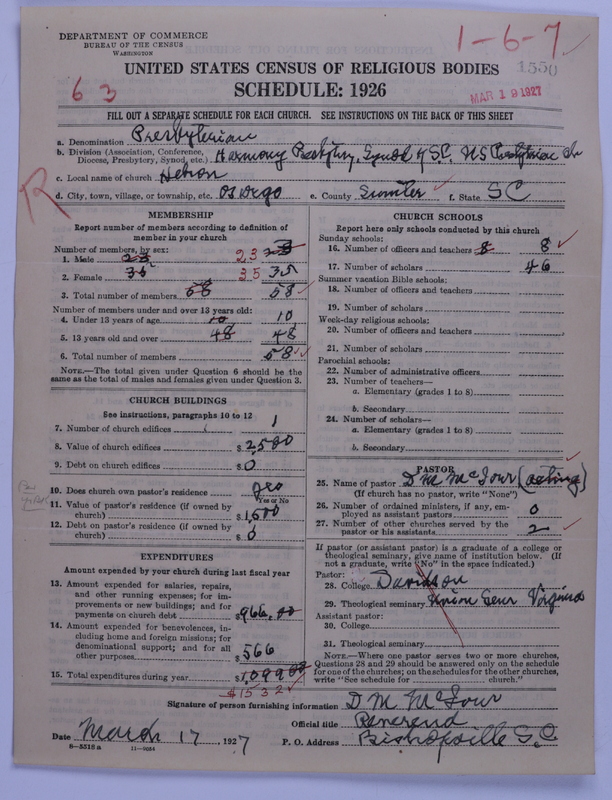 DEPARTMENT OF COMMERCE
BUREAU OF THE CENSUS
WASHINGTON
1-6-7
1550
UNITED STATES CENSUS OF RELIGIOUS BODIES
63
SCHEDULE: 1926
MAR 19 1927
FILL OUT A SEPARATE SCHEDULE FOR EACH CHURCH. SEE INSTRUCTIONS ON THE BACK OF THIS SHEET
a. Denomination Presbyterian
b. Division (Association, Conference, Diocese, Presbytery, Synod, etc.) Harmony Presbytery, Synod of S.C. US Presbyterian Ch
c. Local name of church Hebron
R
d. City, town, village, or township, etc. Oswego e. County Sumter f. State SC
MEMBERSHIP
Report number of members according to definition of
member in your church
Number of members, by sex:
1. Male 23 23
2. Female 35 35
3. Total number of members 58 58
Number of members under and over 13 years old:
4. Under 13 years of age 10 10
5. 13 years old and over 48 48
6. Total number of members 58
NOTE.—The total given under Question 6 should be
same as the total of males and females given under Question 3.
CHURCH BUILDINGS
See instructions, paragraphs 10 to 12
7. Number of church edifices 1
8. Value of church edifices $2,500
9. Debt on church edifices $0
10. Does church own pastor's residence yes
Yes or No
11. Value of pastor's residence (if owned by
church) $1,500
12. Debt on pastor's residence (if owned by
church) $0
EXPENDITURES
Amount expended by your church during last fiscal year
13. Amount expended for salaries, repairs,
and other running expenses; for im-
provements or new buildings; and for
payments on church debt $966.00
14. Amount expended for benevolences, in-
cluding home and foreign missions; for
denominational support; and for all
other purposes $566
15. Total expenditures during year $
$1532
CHURCH SCHOOLS
Report here only schools conducted by this church
Sunday schools:
16. Number of officers and teachers 8 8
17. Number of scholars 46
Summer vacation Bible schools:
18. Number of officers and teachers
19. Number of scholars
Week-day religious schools:
20. Number of officers and teachers
21. Number of scholars
Parochial schools:
22. Number of administrative officers
23. Number of teachers—
a. Elementary (grades 1 to 8)
b. Secondary
24. Number of scholars—
a. Elementary (grades 1 to 8)
b. Secondary
PASTOR
25. Name of pastor D M McIour (acting)
(If church has no pastor, write "None")
26. Number of ordained ministers, if any, em-
ployed as assistant pastors 0
27. Number of other churches served by the
pastor or his assistants 2
If pastor (or assistant pastor) is a graduate of a college or
theological seminary, give name of institution below. (If
not a graduate, write "No" in the space indicated.)
Pastor:
28. College Davidson
29. Theological seminary Union Sem Virginia
Assistant pastor:
30. College
31. Theological seminary
NOTE.—Where one pastor serves two or more churches,
Questions 28 and 29 should be answered only on the schedule
for one of the churches; on the schedules for the other churches,
write "See schedule for church."
Signature of person furnishing information D M McIour
Official title Reverend
Date March 17, 1927 P. O. Address Bishopville S.C.
8—5518 a 11—9054